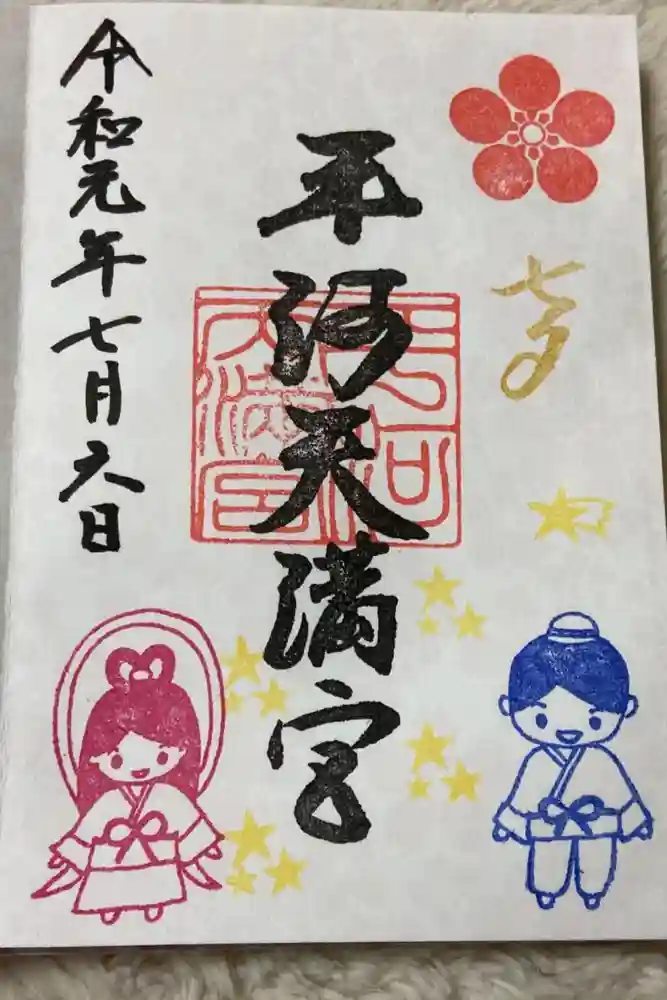 七夕
平河天満宮
令和元年七月六日